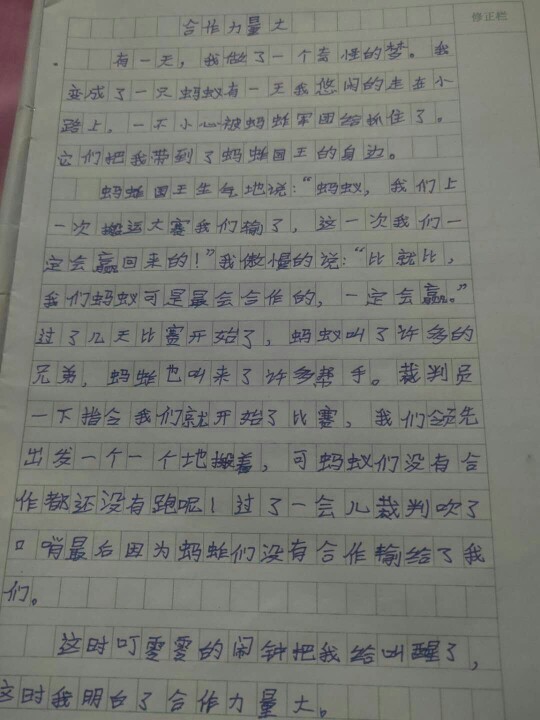 修正栏
合作力量大
有一天，我做了一个奇怪的梦。我
变成了一只蚂蚁有一天我悠闲的走在小
路上，一不小心被蚂蚱军团给抓住了。
它们把我带到了蚂蚱国王的身边。
蚂蚱国王生气地说：“蚂蚁，我们上
一次搬运大赛我们输了，这一次我们一
定会赢回来的！”我傲慢的说：“比就比，
我们蚂蚁可是最会合作的，一定会赢。”
过了几天比赛开始了，蚂蚁叫了许多的
兄弟，蚂蚱也叫来了许多帮手。裁判员
一下指令我们就开始了比赛，我们领先
出发一个一个地搬着，可蚂蚁们没有合
作都还没有跑呢！过了一会儿裁判吹了
口哨最后因为蚂蚱们没有合作输给了我
们。
这时叮零零的闹钟把我给叫醒了，
这时我明白了合作力量大。